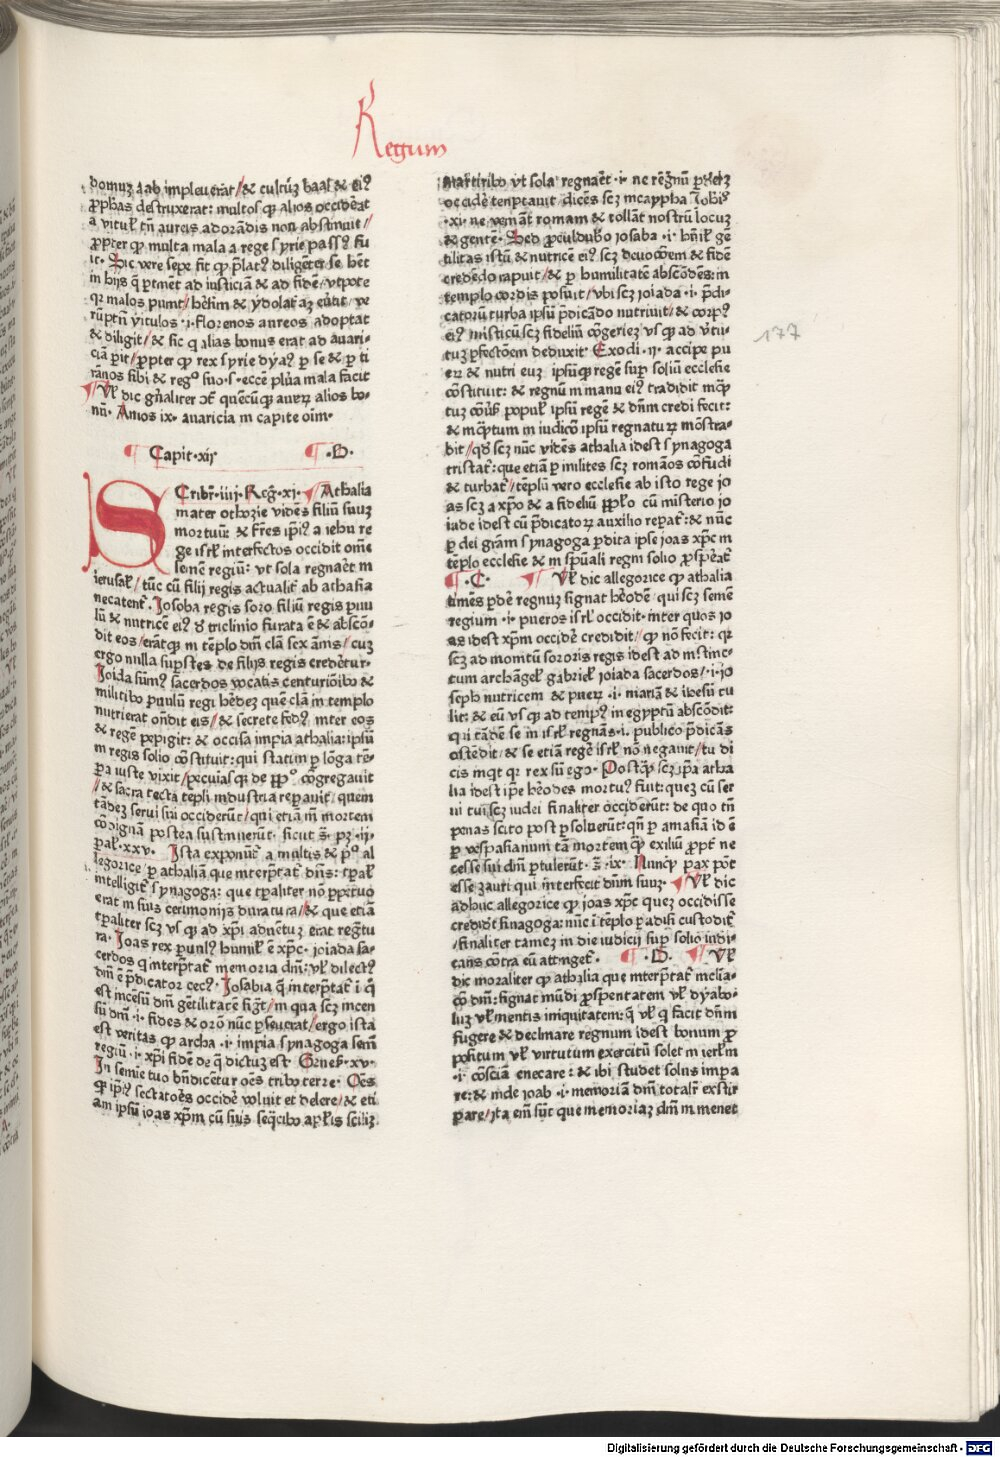 Regum
domuz aab impleuerat/ & cultu᷒ baal & ei᷒
p̄phās destruxerat: multos qꝫ alios occideēt
a vitul̄ tn̄ aureis adorādis non abstinuit/
p̄pter qꝫ multa mala a rege syrie pass᷒ fu
it. Sic vere sepe fit qꝫ p̄lat᷒ diligēter se hēt
in hijs q̄ ptinēt ad iusticiā & ad fidē/ vtpote
qꝛ malos punit/ hēsim & ydolat᷒
rūptn̄ vitulos .i. florenos aureos adoptat
& diligit/ & sic q alias bonus erat ad auari-
ciā p̄it/ p̄pter qꝫ rex syrie dya᷒ p se & p ti
rānos sibi & reg᷒ suo .s. eccē plīa mala facit
Vl̄ dic gn̄aliter alios bo-
nū. Amos ix. auaricia in capite oīm.
Capit. xij .B.
SCribr̄ .iiij. Reḡ. xi. Athalia
mater othozie vidēs filiū suuꝫ
mortuū: & fr̄es ip̄i᷒ a iehu re
ge isrl̄ interfectos occidit omē
semē regiū: vt sola regnaēt in
ierusal̄/ tūc cū filij regis actualit᷒ ab athalia
necatent᷒. Josoba regis soro filiū regis paru
lū & nutricē ei᷒ d triclinio furata ē & abscō-
dit eos/ erātqꝫ in tēplo dn̄i clā sex ānis/ cuꝫ
ergo nulla sup̄stes de filijs regis credētur.
Joida sum᷒ sacerdos vocatis centuriōibꝰ &
militibꝰ puulū regi hēdeꝫ quē clā in templo
nutrierat on̄dit eis/ & secrete fed᷒ inter eos
& regē pepigit: & occisa impia athalia: ipsū
in regis solio cōstituit: qui statim p lōga tē-
pa iuste vixit/ pecuiasqꝫ de pp̄o cōgregauit
/& sacra tecta tēpli industria rep̄auit/ quem
tādeꝫ serui sui occiderūt/ qui etiā in mortem
cōdignā postea sustinuerūt. sicut s̄. pꝫ .ij.
pal̄. xxv. Ista exponūt᷒ a multis & p᷒ al
legorice/ p athaliā que interp̄tat᷒ dn̄s: tpal̄
intelligit᷒ synagoga: que tpaliter nō ppetuo
erat in suis cerimonijs duratura/ & que etiā
tpaliter scꝫ vsqꝫ ad xp̄i aduētuꝫ erat regtu
ra. Joas rex puul᷒ humil̄ ē xp̄c. joiada sa-
cerdos q interp̄tat᷒ memoria dn̄i: vl̄ dilect᷒
dn̄i ē p̄dicator cec᷒. Josabia q̄ interp̄tat᷒ i q̄
est incēsū dn̄i gētilitatē fig̅t/ in qua scꝫ incen
sū dn̄i .i. fides & orō nūc pseuerat/ ergo ista
est veritas qꝫ archa .i. impia synagoga semē
regiū .i. xp̄i fidē de q̄ dictuꝫ est. Genes̄. xv.
In semie tuo bn̄dicētur oēs tribꝰ terre. Oēs
qꝫ ip̄i᷒ sectatoēs occidē voluit et delere/ & eti
am ipsū joas xp̄m cū suis seq̄cibꝰ apl̄is sciliꝫ
martiribꝰ vt sola regnaēt .i. ne rēgnū p̄detꝫ
occidē temptauit/ dicēs scꝫ in caypha Johis̄
.xi. ne veniāt romani & tollāt nostrū locuꝫ
& gentē. Sed p̄culdubio iosaba .i. hm̄il̄ gē
tilitas istū & nutricē ei᷒ scꝫ deuoc̄oem & fidē
credēdo rapuit/ & p humilitatē abscōdes: in
templo cordis posuit/ vbi scꝫ joiada .i. p̄di-
catorū turba ipsū p̄dicādo nutriuit/ & corp᷒
ei᷒ misticū scꝫ fideliū cōgeriez vsqꝫ ad virtu-
tuꝫ pfectōem deduxit. Exodi .ij. accipe pu
erꝫ & nutri euꝫ ipsūqꝫ regē sup̄ soliū ecclesie
cōstituit: & regnū in manu ei᷒ tradidit
tuꝫ popul̄ ipsū regē & dn̄m credi fecit:
& in iudicō ipsū regnaturꝫ mōstra-
bit/ qd̄ scꝫ nūc vidēs athalia idest synagoga
tristat᷒: que etiā p milites scꝫ romāos cōfūdi
& turbat᷒/ tēplū vero ecclesie ab isto rege jo
as scꝫ a xp̄o & a fideliū pp̄lo cū misterio jo
iade idest cū p̄dicatorꝫ auxilio repat᷒: & nūc
p dei grām synagoga pdita ipse joas xp̄c in
tēplo ecclesie & in sp̄uali regni solio p̄spēat᷒
.C. Vl̄ dic allegorice qꝫ athalia
timēs pdē regnuꝫ signat hēodē: qui scꝫ semē
regium .i. pueros isrl̄ occidit: inter quos jo
as idest xp̄m occidē credidit/ qꝫ nō fecit: qꝛ
scꝫ ad momtū sororis regis idest ad instinc-
tum archāgel̄ gabriel̄ joiada sacerdos/ .i. jo
seph nutricem & puerꝫ .i. mariā & ihesū tu
lit: & eū vsqꝫ ad temp᷒ in egyptū abscōdit:
qui tādē se in isrl̄ regnās .i. publico p̄dicās
ostēdit/ & se etiā regē isrl̄ nō negauit/ tu di
cis inqt qꝛ rex sū ego. Postqꝫ scꝫ ip̄a atha
lia idest ip̄e hēodes mortu᷒ fuit: queꝫ cū ser
ui tui scꝫ iudei finaliter occiderūt: de quo tn̄
penas scito post psoluerūt: qn̄ p amasiā id ē
p vespasianum tā mortem qꝫ exiliū p̄pt᷒ ne
cesse sui dn̄i ptulerūt. s̄. ix. Nunqꝫ pax pōt
esse zamri qui interfecit dn̄m suuꝫ. Vl̄ dic
adhuc allegorice qꝫ joas xp̄c quez occidisse
credidit sinagoga: nūc ī tēplo padisi custodit᷒
/finaliter tamez in die iudicij sup̄ solio iudi-
cans cōtra eū attinget. .D. Vl̄
dic moraliter qꝫ athalia que interp̄tat᷒ inclīa-
tō dn̄i: signat mūdi p̄speritatem vl̄ dyabo-
luꝫ vl̄ mentis iniquitatem: q̄ vl̄ q facit dn̄m
fugere & declinare regnum idest bonum p̄
positum vl̄ virtutum exercitū solet in ierl̄m
.i. cōscīa enecare: & ibi studet solus impa
re: & inde joab .i. memoriā dn̄i totalr̄ extir
pare/ ita em̄ sūt que memoriaꝫ dn̄i in menet
177
Digitalisierung gefördert durch die Deutsche Forschungsgemeinschaft - DFG